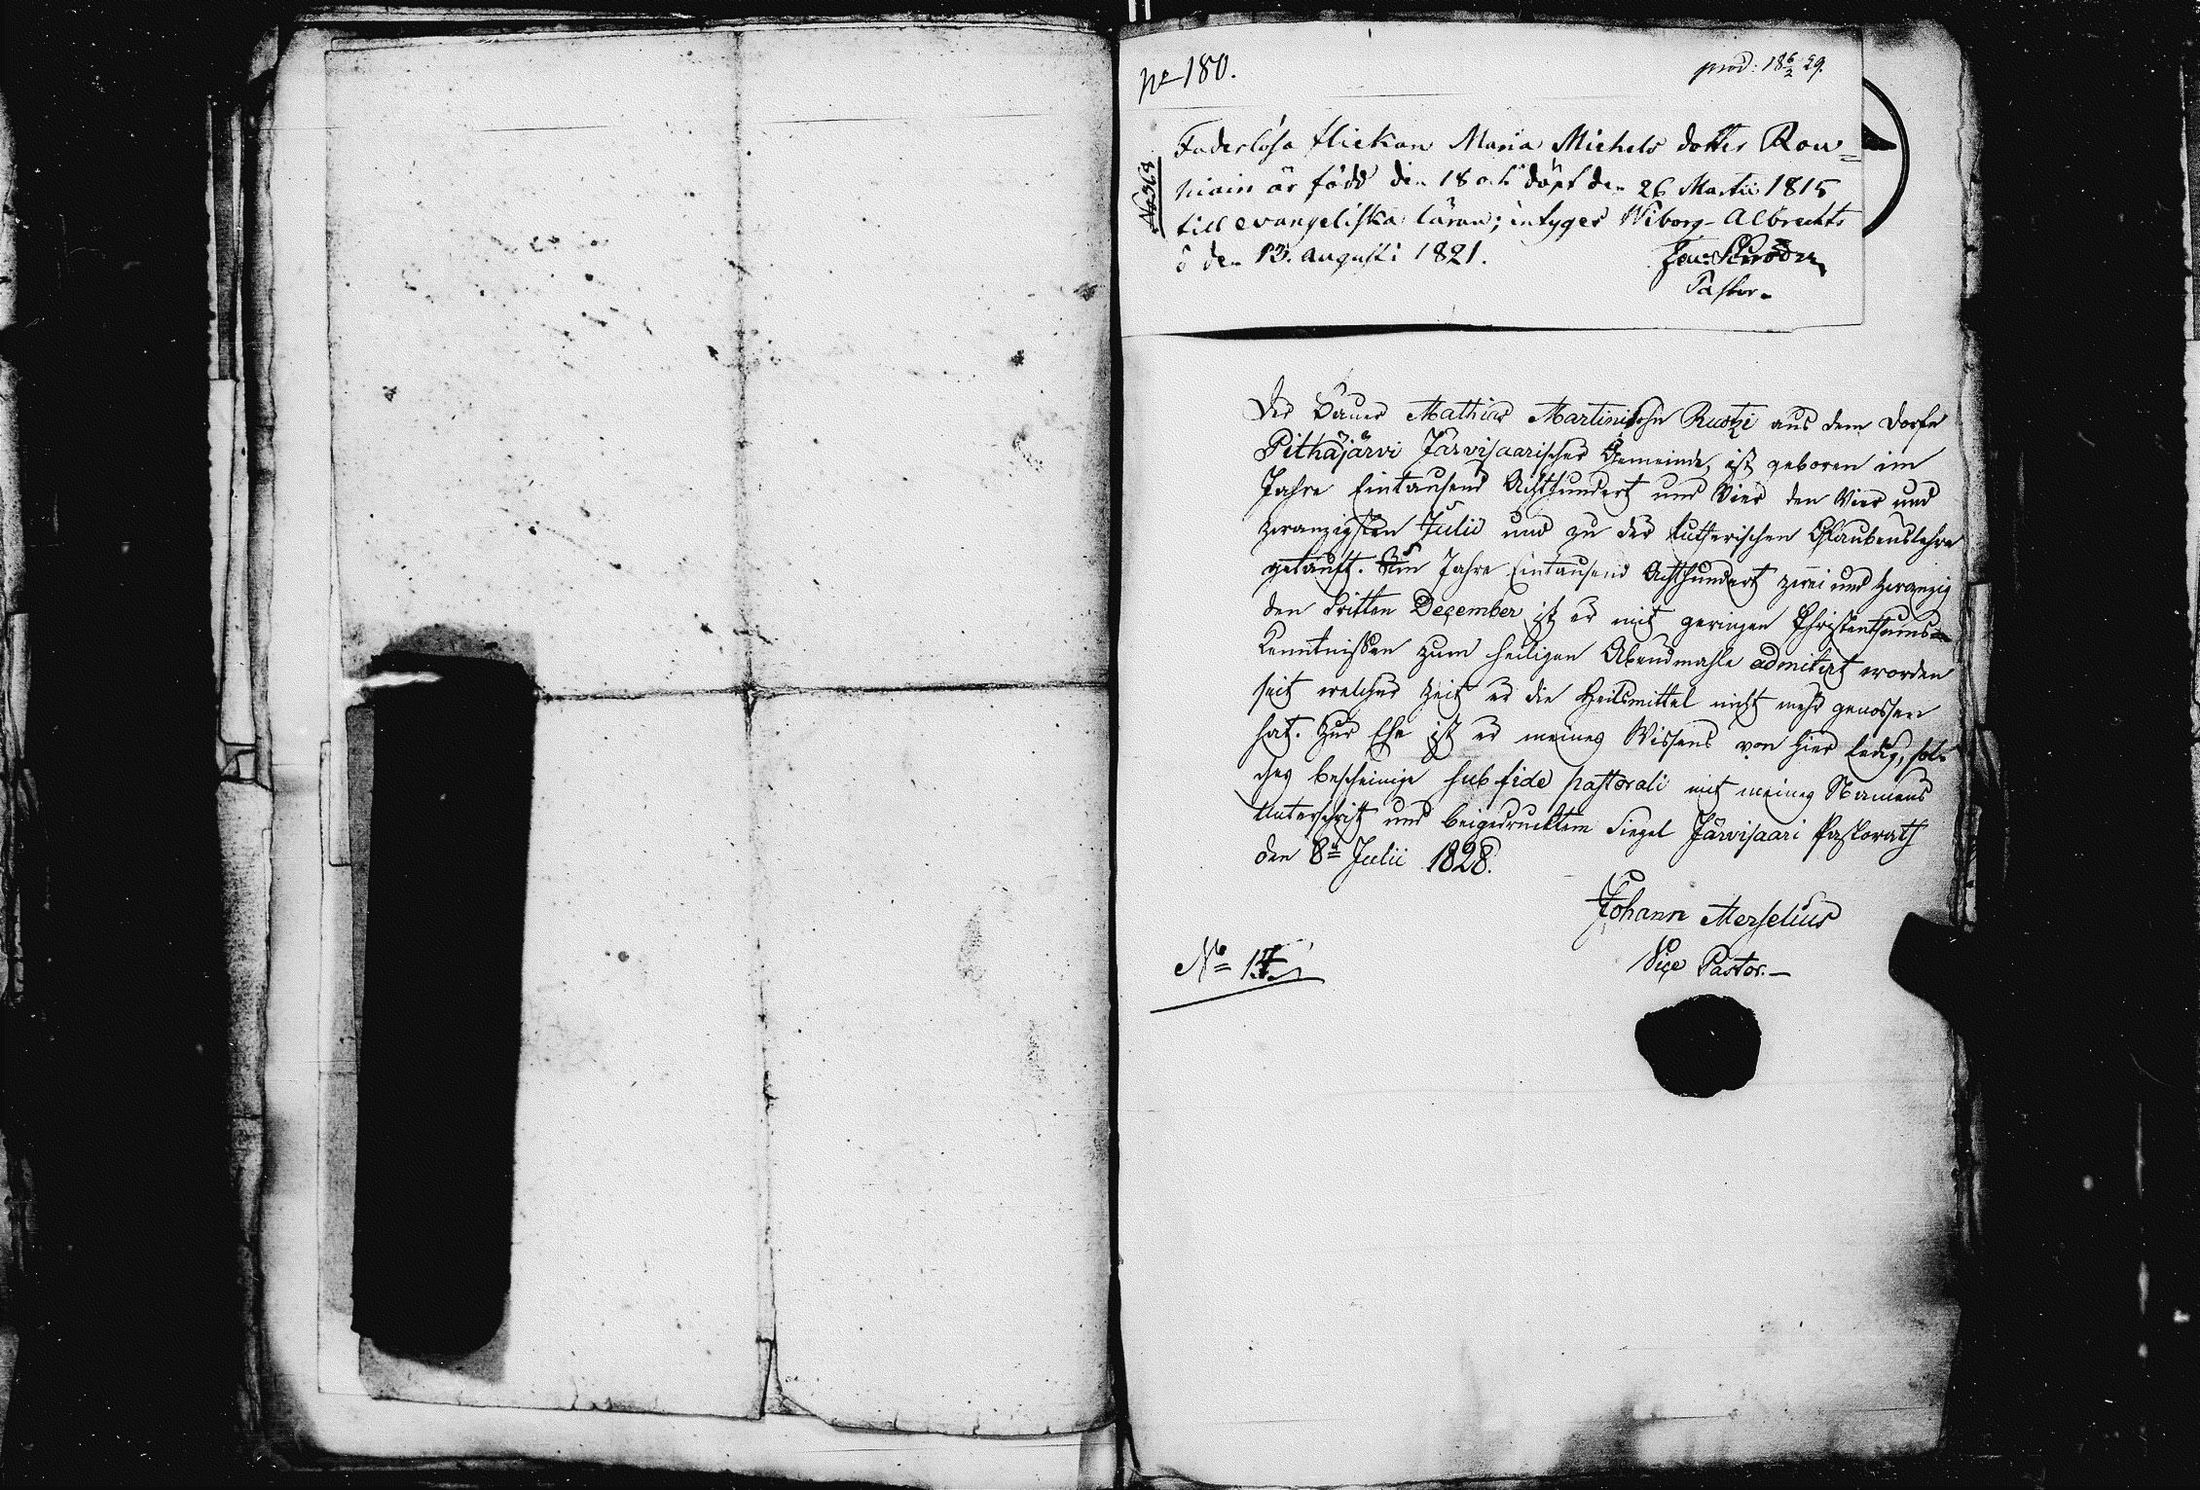 No 180.
prod: 18 6/2 29.
No 968
Faderlösa flickan Maria Michels dotter Rou=
niain är född den 18 och döpt den 26 Martii 1815
till evangeliska läran; intyges Wiborg Albrechts
ö den 13. augusti 1821.
Schröder
Pastor.
Der Bauer Mathias Martinisohn Ruotzi aus dem Dorfe
Pithäjärvi Järvisaarischer Gemeinde, ist geboren im
Jahre Eintausend Achthundert und Vier den Vier und
zwanzigsten Julii und zu der lutherischen Glaubenslehre
getauft. Im Jahre Eintausend Achthundert zwei und zwanzig
den dritten December ist er mit geringen Christenthums
Kenntnißen zum heiligen Abendmahle admitirt worden
seit welcher Zeit er die Heilsmittel nicht mehr genossen
hat. Zur Ehe ist er meines Wissens von hier ledig, sol=
ches bescheinige sub fide pastorali mit meines Namens
Unterschrift und beigedrucktem Siegel Järvisaari Pastorath
den 8n Julii 1828.
Johann Merselius
Vice Pastor.
No 17